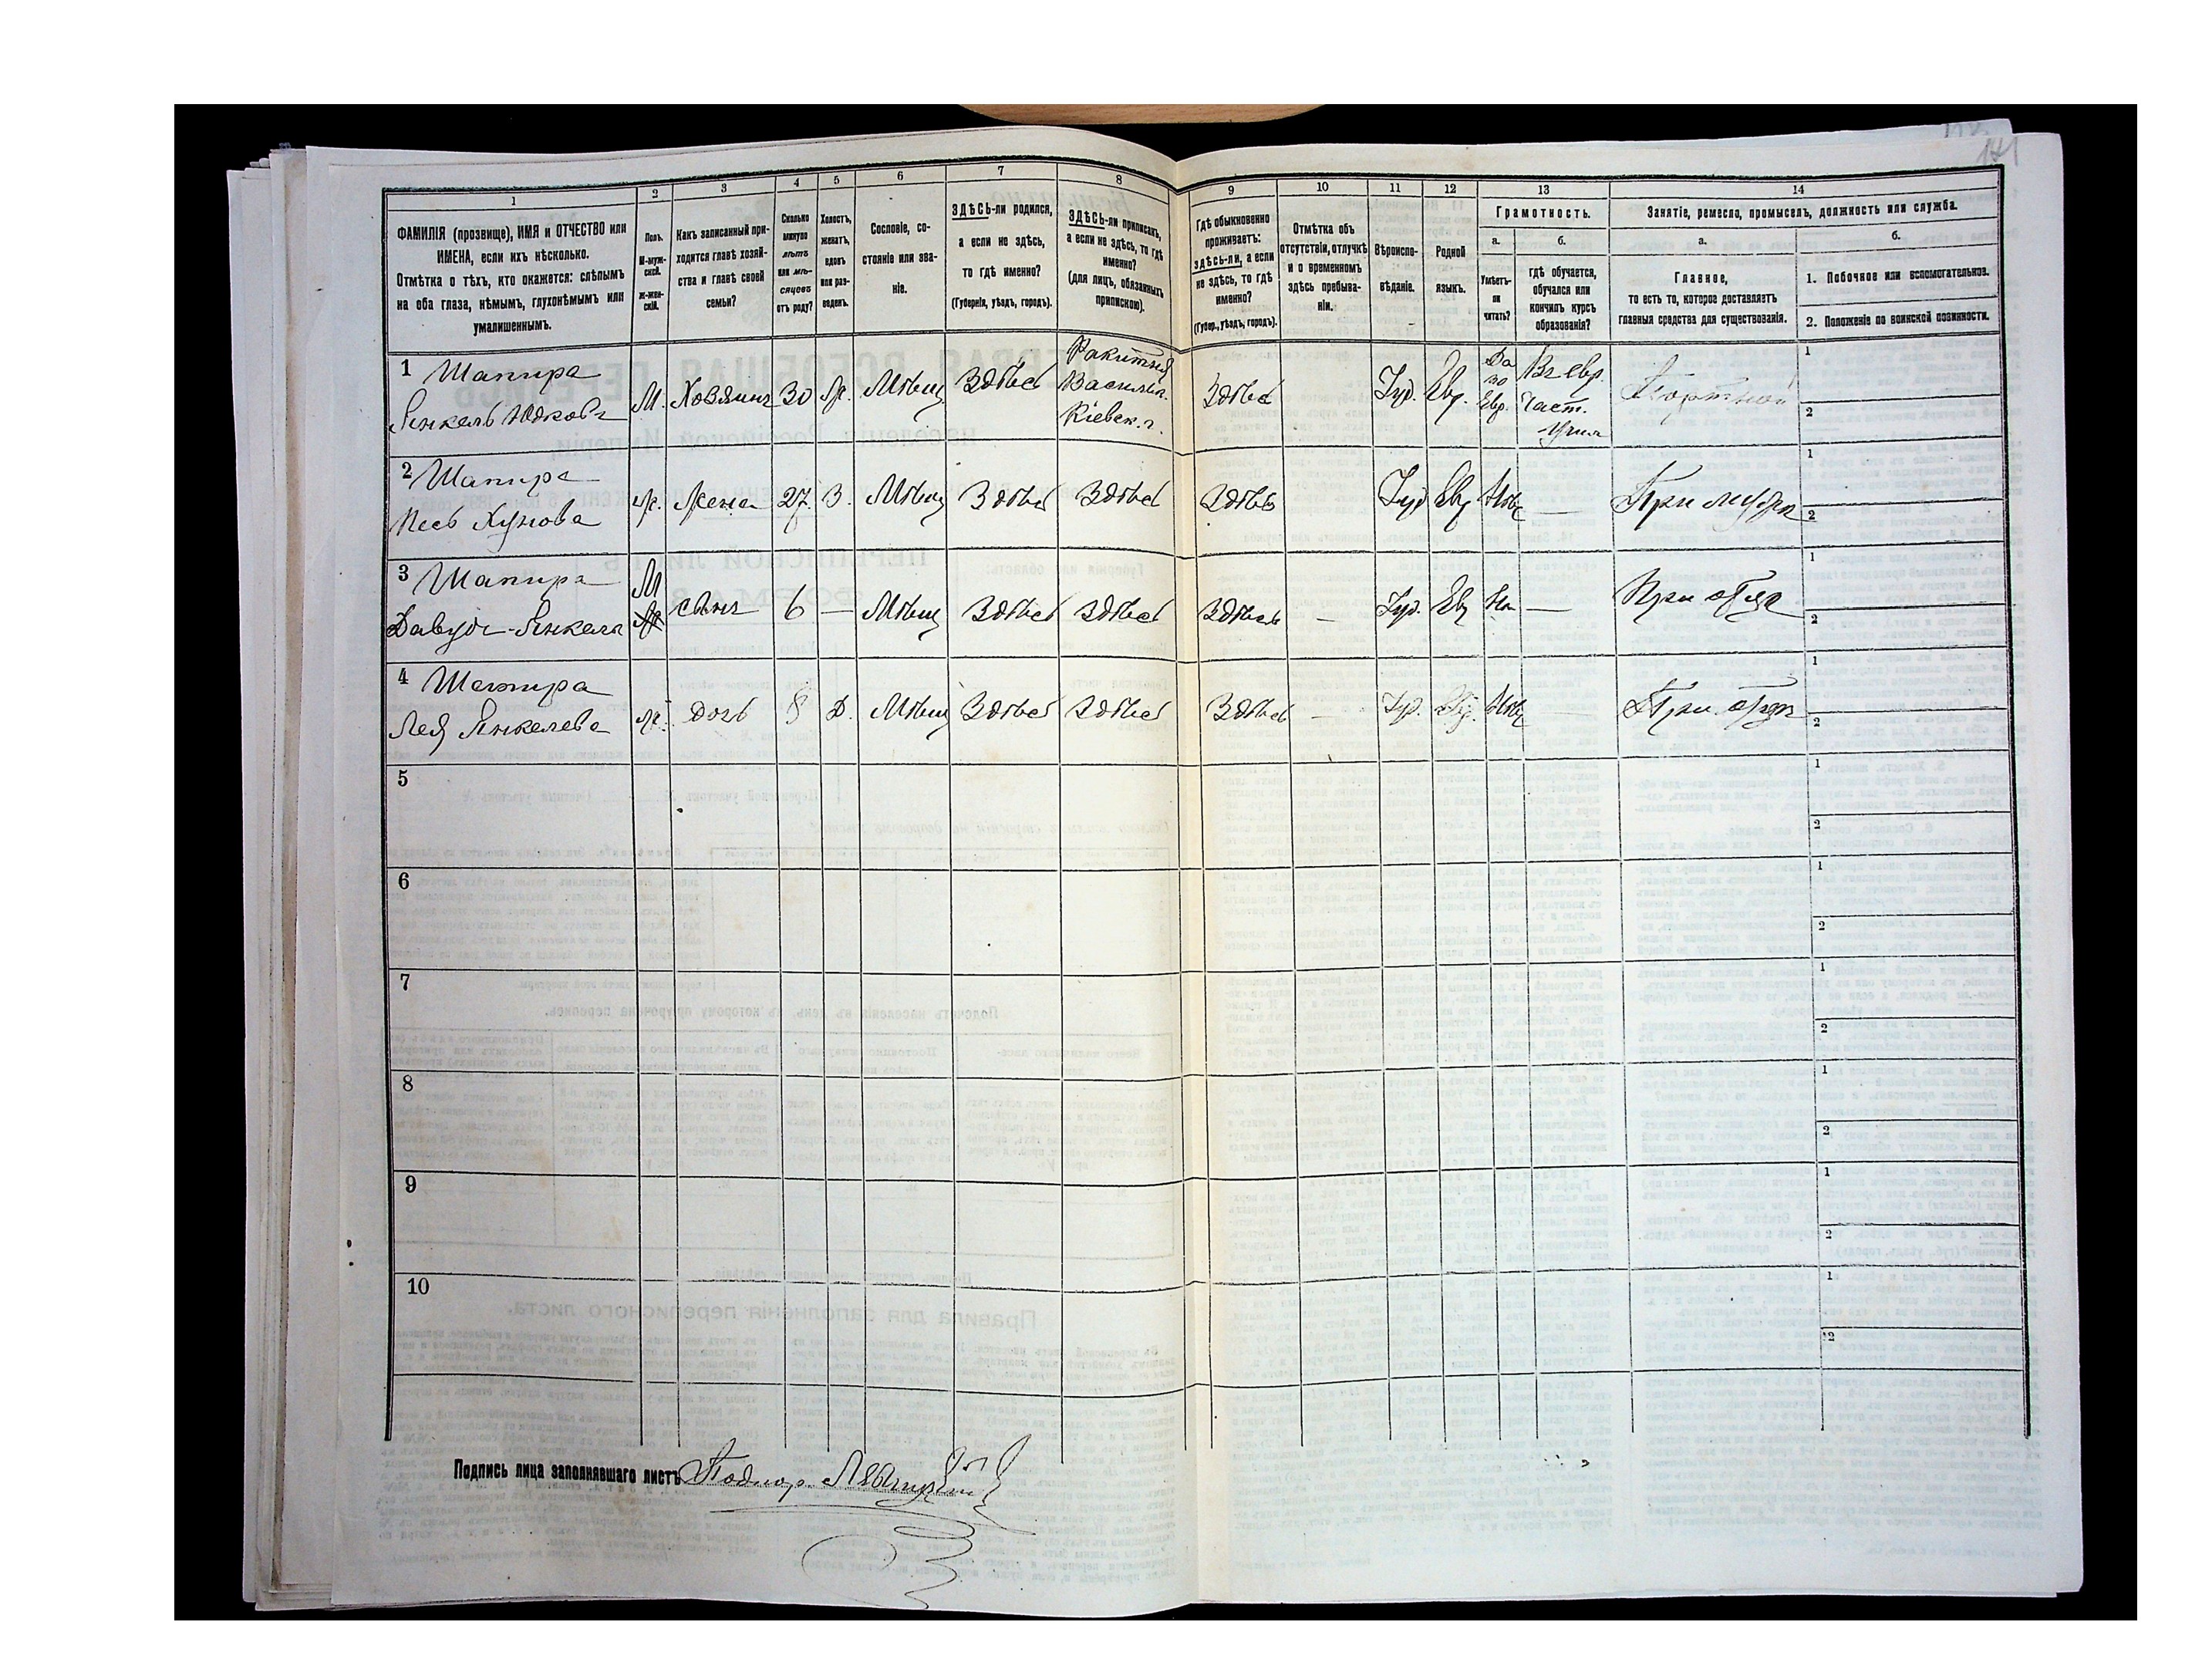 141
1 2 3 4 5 6 7 8 9 10 11 12 13 14
ФАМИЛІЯ (прозвище), ИМЯ и ОТЧЕСТВО или
ИМЕНА, если ихъ нѣсколько.
Отмѣтка о тѣхъ, кто окажется: слѣпымъ
на оба глаза, нѣмымъ, глухонѣмымъ или
умалишеннымъ.
Полъ.
М-муж-
ской.
Ж-жен-
скій.
Какъ записанный при-
ходится главѣ хозяй-
ства и главѣ своей
семьи?
Сколько
минуло
лѣтъ
или мѣ-
сяцовъ
отъ роду?
Холостъ,
женатъ,
вдовъ
или раз-
веденъ.
Сословіе, со-
стояніе или зва-
ніе.
ЗДѢСЬ-ли родился,
а если не здѣсь,
то гдѣ именно?
(Губернія, уѣздъ, городъ).
ЗДѢСЬ-ли приписанъ,
а если не здѣсь, то гдѣ
именно?
(для лицъ, обязанныхъ
припискою).
Гдѣ обыкновенно
проживаетъ:
здѣсь-ли, а если
не здѣсь, то гдѣ
именно?
(Губер., уѣздъ, городъ).
Отмѣтка объ
отсутствіи, отлучкѣ
и о временномъ
здѣсь пребыва-
ніи.
Вѣроиспо-
вѣданіе.
Родной
языкъ.
Грамотность.
а. б.
Умѣетъ-
ли
читать?
гдѣ обучается,
обучался или
кончилъ курсъ
образованія?
Занятіе, ремесло, промыселъ, должность или служба.
а. б.
Главное,
то есть то, которое доставляетъ
главныя средства для существованія.
1. Побочное или вспомогательное.
2. Положеніе по воинской повинности.
1 Шапира
Янкель Юдковъ
М. Хозяинъ 30 Ж. Мѣщ Здѣсь
Ракитная
Васильк.
Кіевск. г.
Здѣсь Іуд. Евр.
Да
по
Евр.
Въ евр.
Част.
Учил
Портной
1
2
2 Шапира
Песь Хунова
Ж. Жена 27. З. Мѣщ Здѣсь Здѣсь Здѣсь Іуд Евр Нѣт — При мужѣ
1
2
3 Шапира
Давудъ-Янкель
М
сынъ 6 — Мѣщ Здѣсь Здѣсь Здѣсь — Іуд. Евр — При отцѣ
1
2
4 Шапира
Лея Янкелева
Ж. дочь 8 Д. Мѣщ Здѣсь Здѣсь Здѣсь — Іуд. Евр. Нѣт — При отцѣ
1
2
5
1
2
6
1
2
7
1
2
8
1
2
9
1
2
10
1
2
Подпись лица заполнявшаго листъ